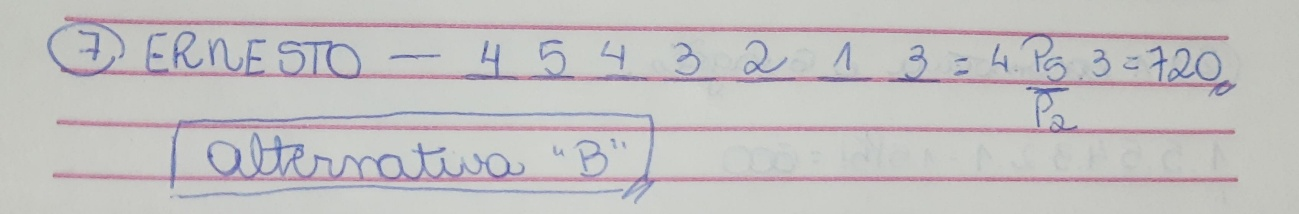 7 ERNESTO — 4 5 4 3 2 1 3 = 4.P5.3 = 720
P2
alternativa "B"